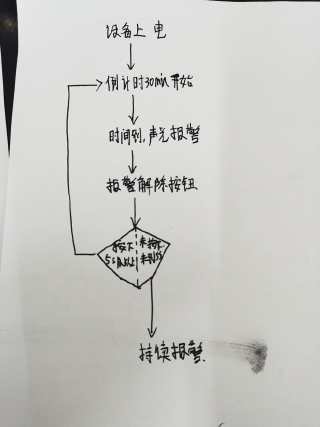 设备上电
倒计时30min开始
时间到,声光报警
报警解除按钮
按下
5s以上
未按下
持续报警.